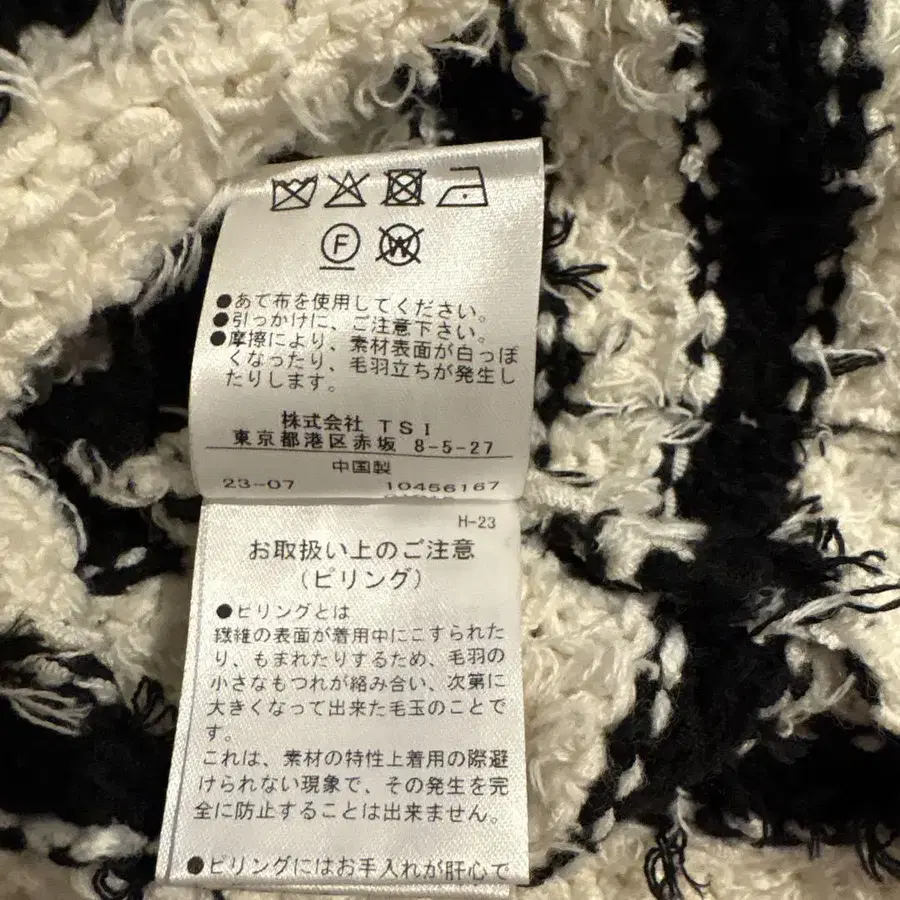 F
W
●あて布を使用してください。
●引っかけに、ご注意下さい。
●摩擦により、素材表面が白っぽ
くなったり、毛羽立ちが発生し
たりします。
株式会社 TSI
東京都港区赤坂 8-5-27
中国製
23-07 10456167
H-23
お取扱い上のご注意
(ピリング)
●ピリングとは
繊維の表面が着用中にこすられた
り、もまれたりするため、毛羽の
小さなもつれが絡み合い、次第に
大きくなって出来た毛玉のことで
す。
これは、素材の特性上着用の際避
けられない現象で、その発生を完
全に防止することは出来ません。
●ピリングにはお手入れが肝心で